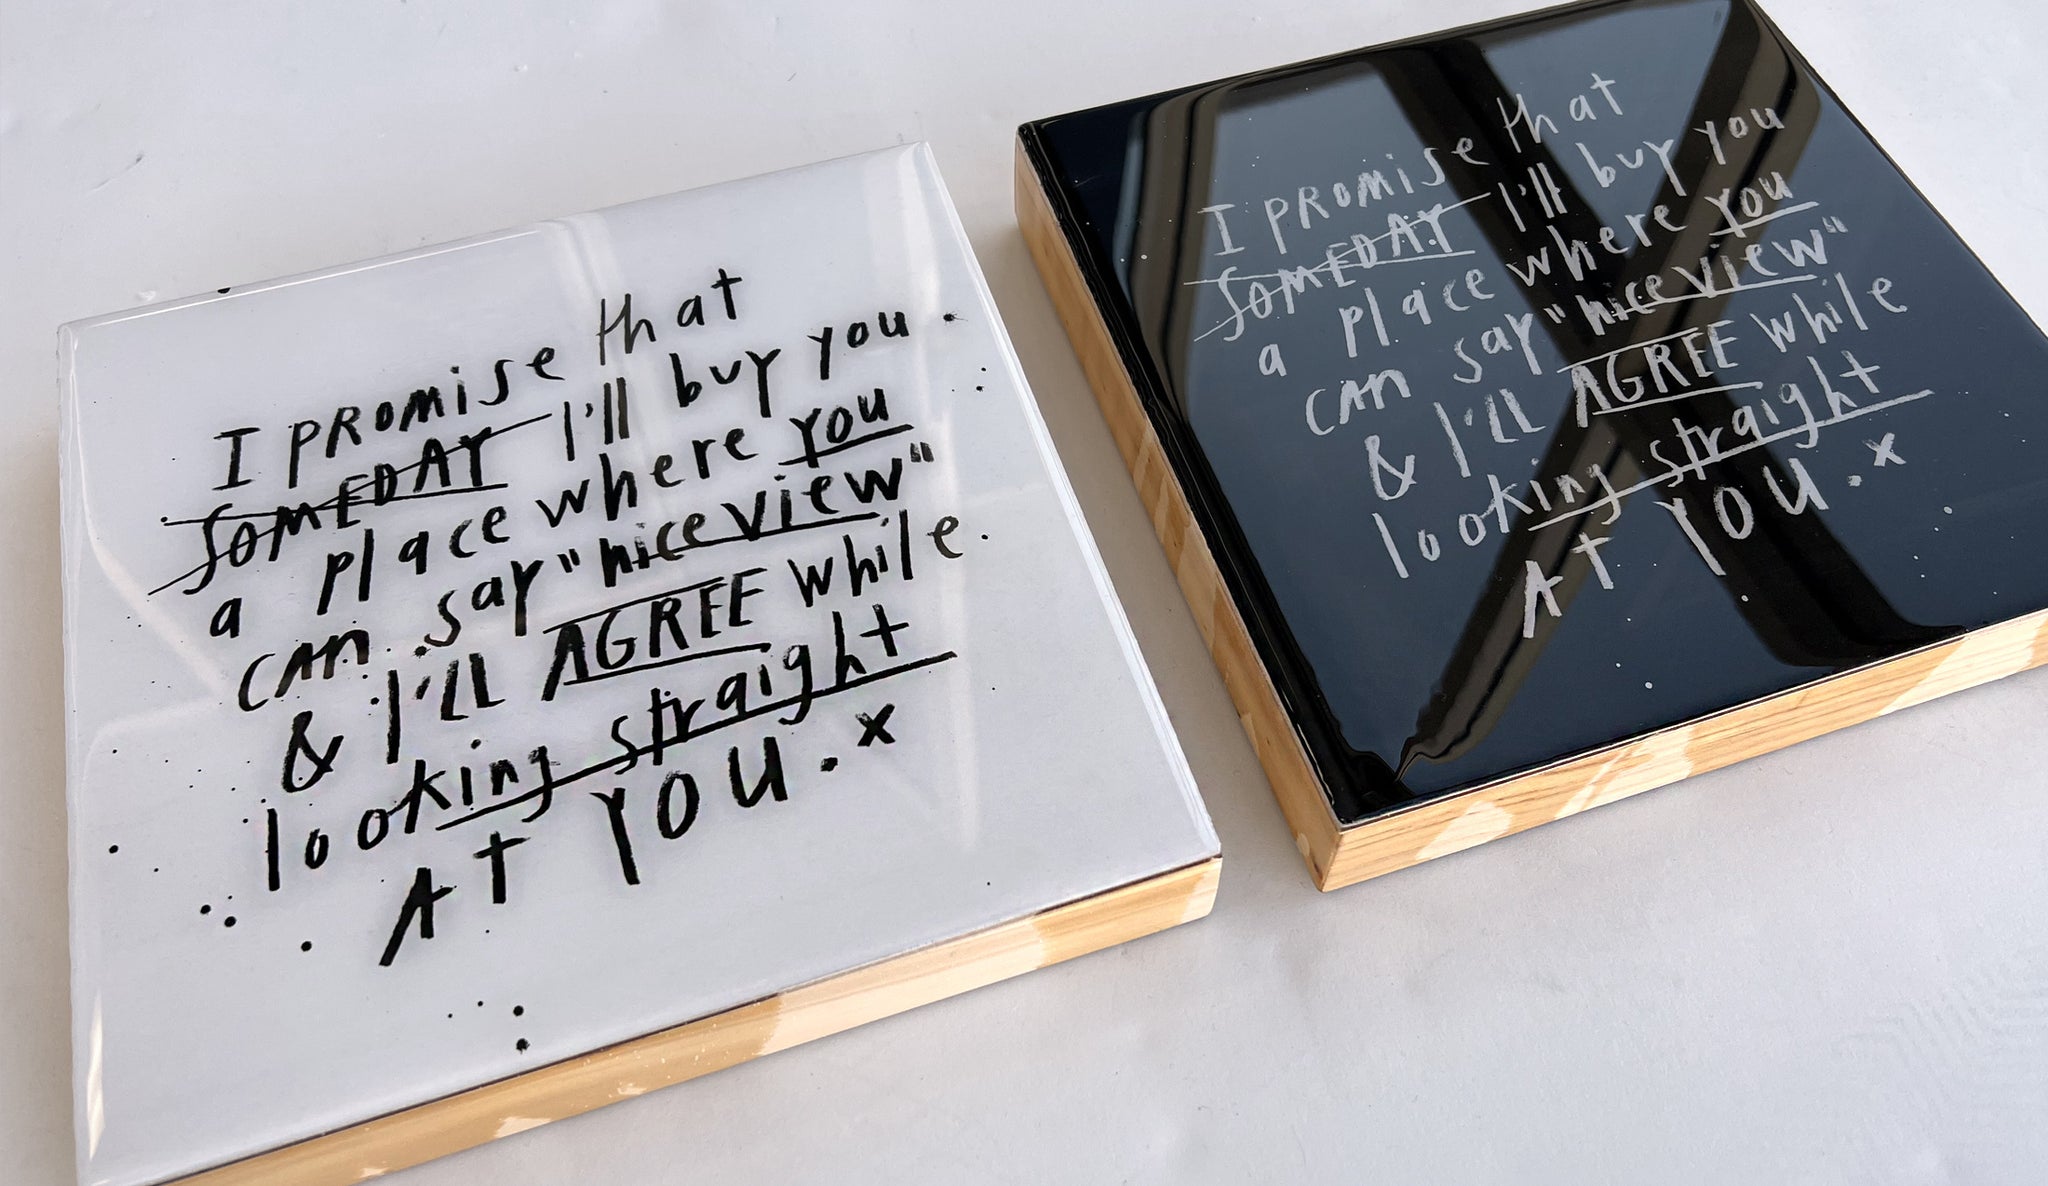 I PROMISE that
SOMEDAY I'll buy you
a place where you
CAN say "nice view"
& I'LL AGREE while
looking straight
AT YOU. x
I PROMISE that
SOMEDAY I'll buy you
a place where you
CAN say "nice view"
& I'LL AGREE while
looking straight
AT YOU. x